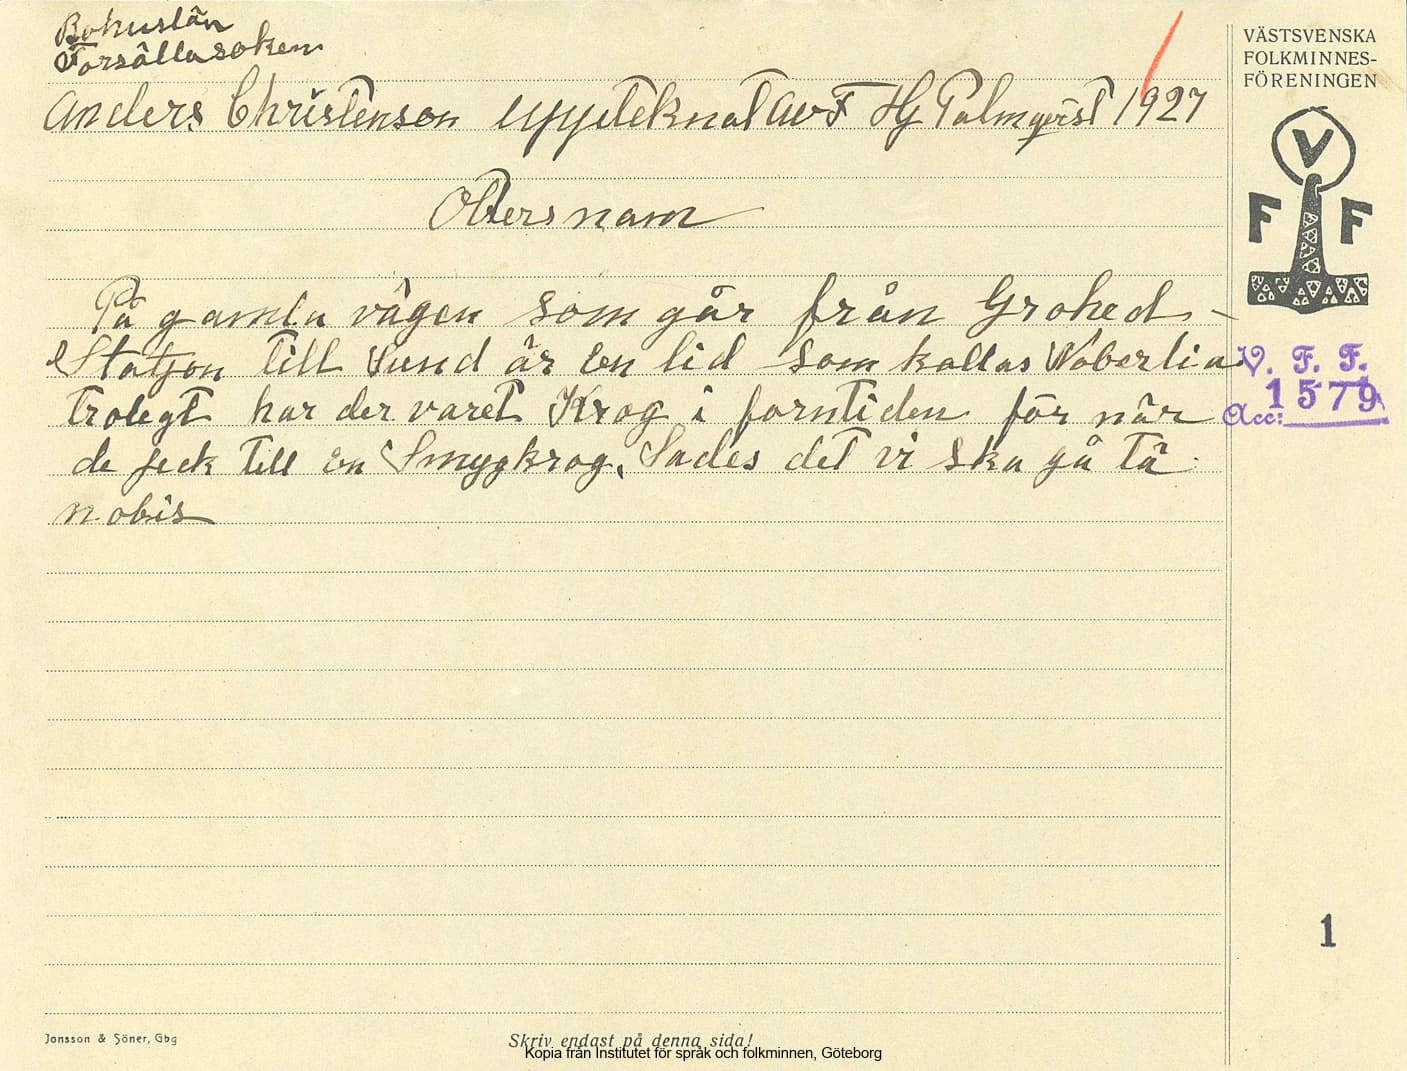 Bohuslän
Forsälla soken
Anders Christenson uppteknat avF Hj Palmqvist 1927
Otters nam
På gamla vägen som går från Grohed-
Statjon till Sund är en lid som kallas Noberlia
trolegt har der varet Krog i forntiden för når
de feck till en Smygkrog, Sades det vi ska gå tä
nobis
VÄSTSVENSKA
FOLKMINNES-
FÖRENINGEN
V
F F
V. F. F.
1579
Acc:
1
Jonsson & Söner, Gbg
Skriv endast på denna sida!
Kopia från Institutet för språk och folkminnen, Göteborg